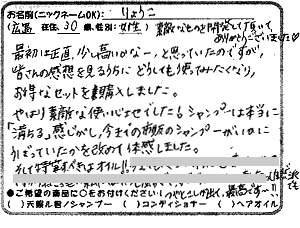 お名前(ニックネームOK): りょうこ
(広島 在住, 30 歳, 性別: 女性) 素敵なものを開発して頂いて
ありがとうございました♡
最初は正直、少し高いかな…と思っていたのですが、
皆さんの感想を見るうちにどうしても使ってみたくなり、
お得なセットを購入しました。
やはり素敵な使い心地でした! シャンプーは本当に
「満ちる」感じがし、今までの市販のシャンプーがいかに
うばっていたかを改めて体感しました。
そして特筆すべきはオイル!!
●ご希望の商品に○をお付けください! つやとしっとり 最高です…!!
( ) 天照ル君/シャンプー ( ) コンディショナー ( ) ヘアオイル